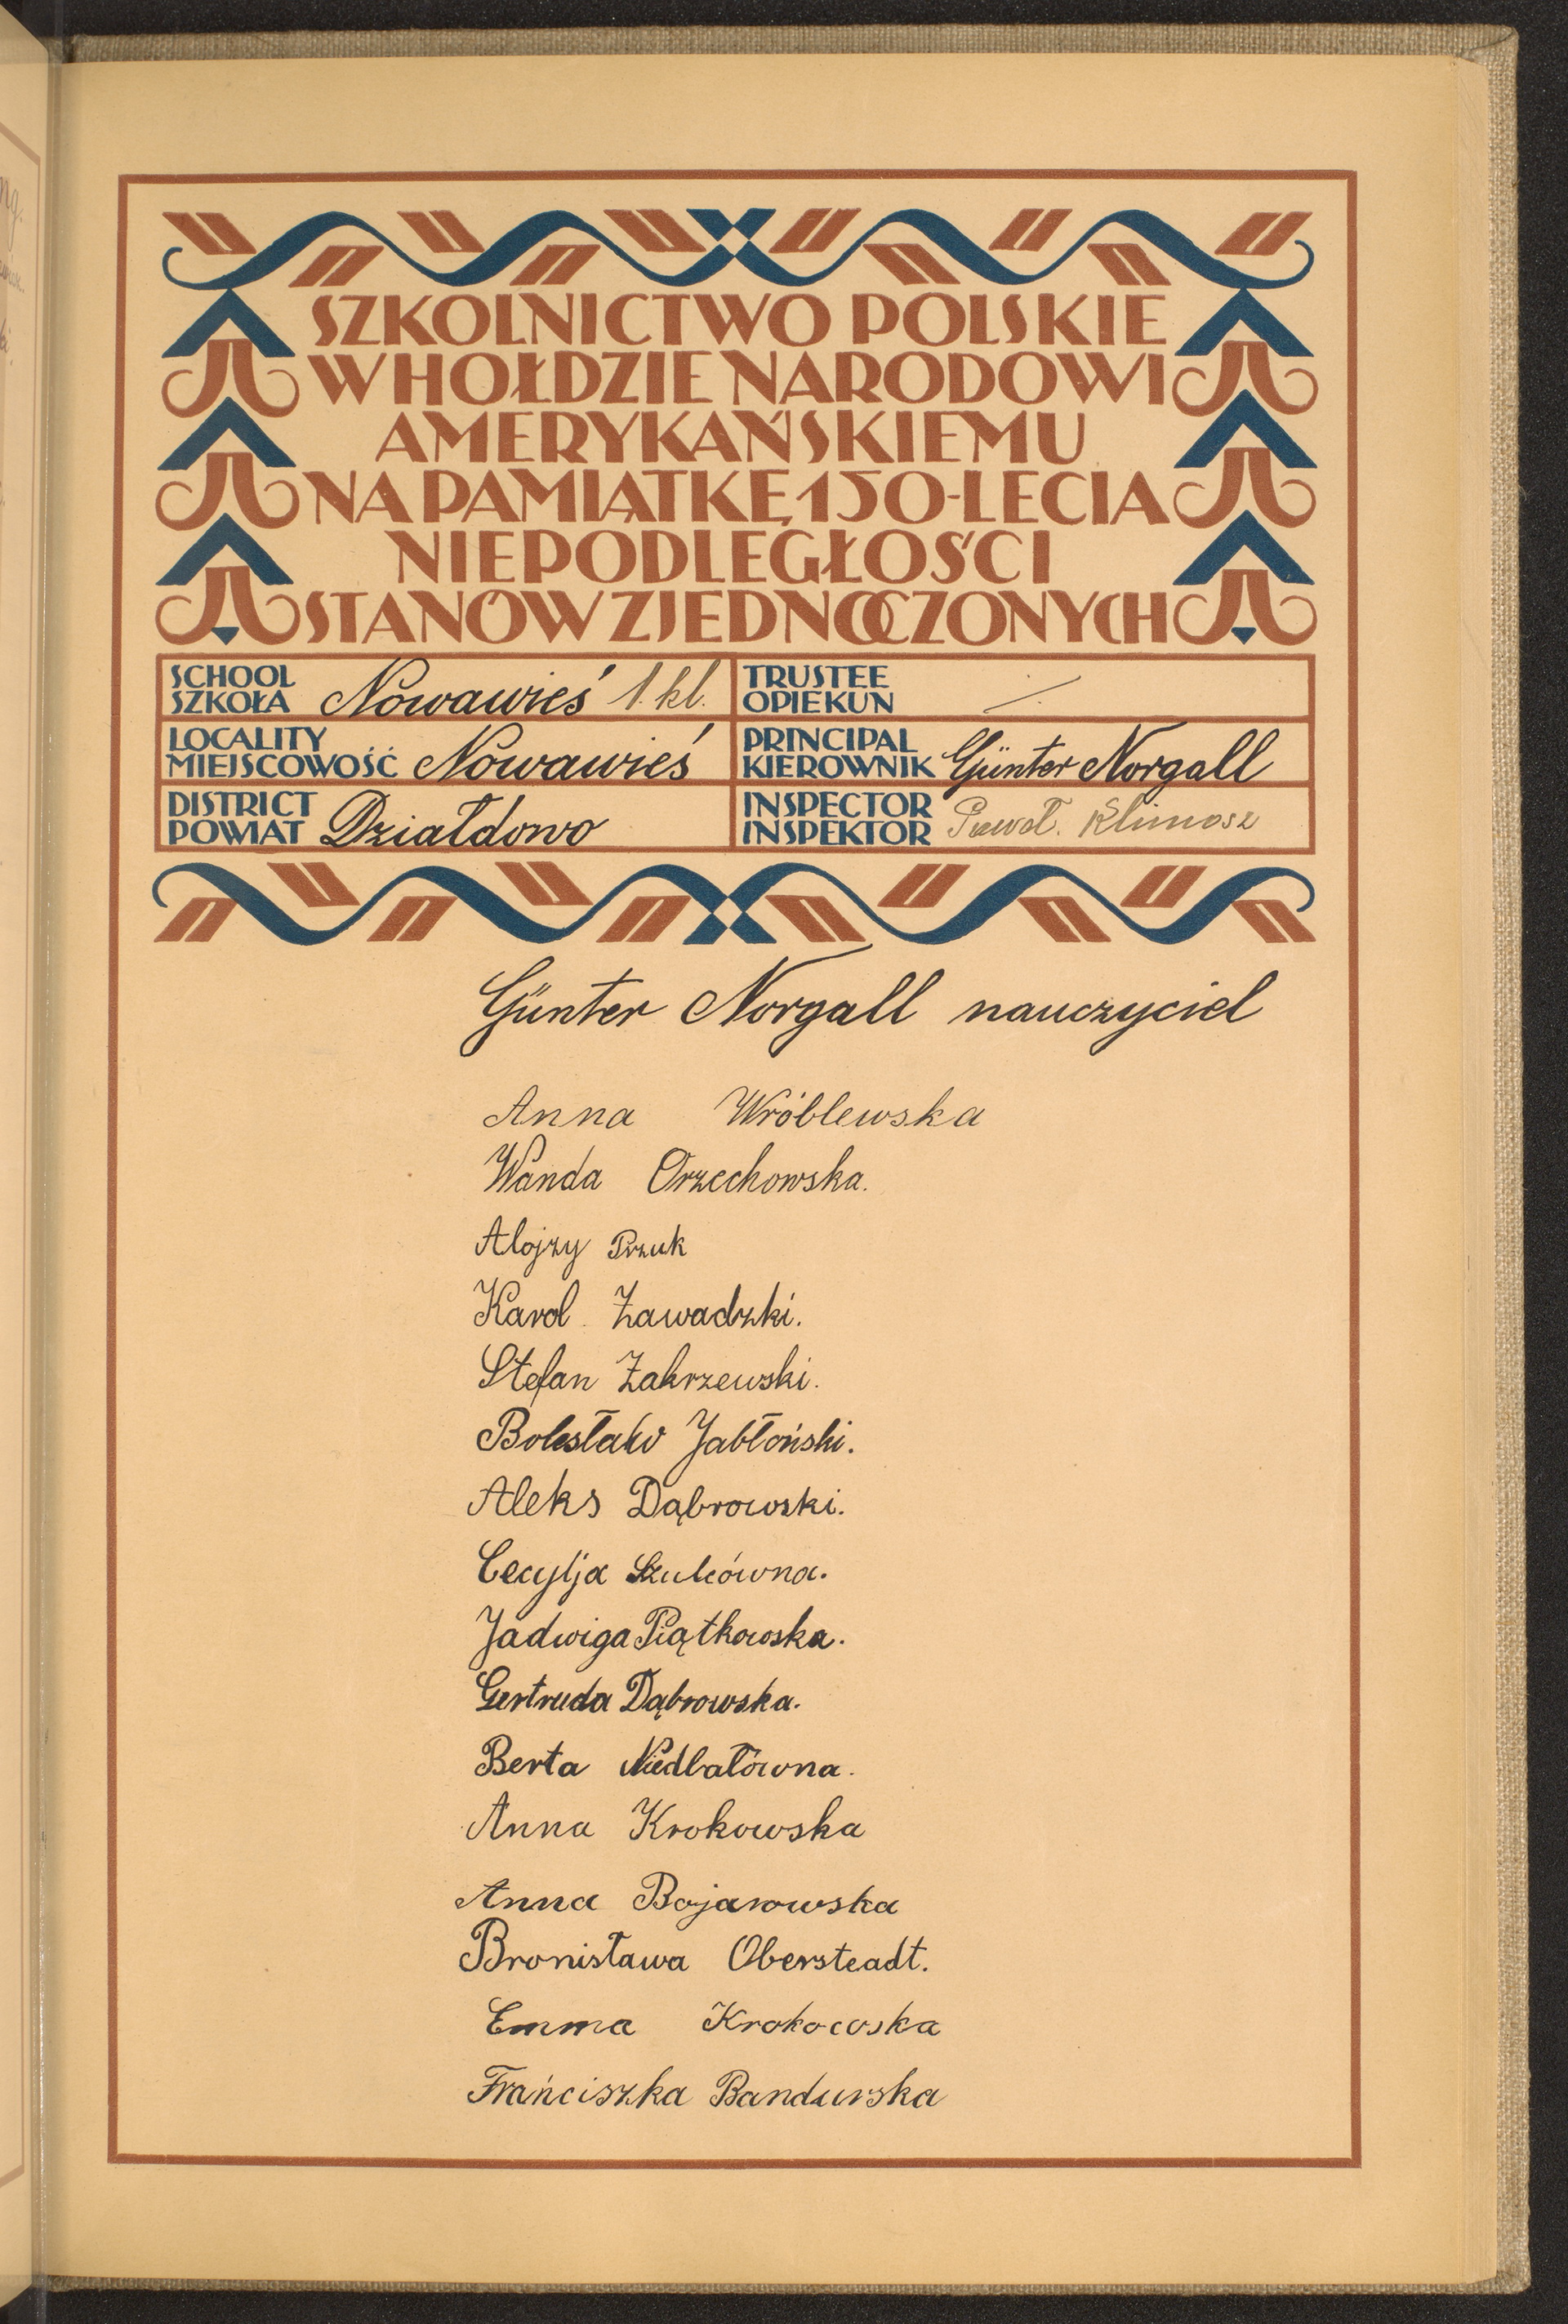 SZKOLNICTWO POLSKIE
W HOŁDZIE NARODOWI
AMERYKAŃSKIEMU
NA PAMIĄTKĘ 150-LECIA
NIEPODLEGŁOŚCI
STANÓW ZJEDNOCZONYCH
SCHOOL
SZKOŁA Nowawieś 1. kl.
TRUSTEE
OPIEKUN
LOCALITY
MIEJSCOWOŚĆ Nowawieś
PRINCIPAL
KIEROWNIK Günter Norgall
DISTRICT
POWIAT Działdowo
INSPECTOR
INSPEKTOR Paweł. Klimosz
Günter Norgall nauczyciel
Anna Wróblewska
Wanda Orzechowska.
Alojzy Przuk
Karol Zawadzki.
Stefan Zakrzewski.
Bolesław Jabłoński.
Aleks Dąbrowski.
Cecylja Szulcówna.
Jadwiga Piątkowska.
Gertruda Dąbrowska.
Berta Niedbałówna.
Anna Krokowska
Anna Bojarowska
Bronisława Obersteadt.
Emma Krokowska
Frańciszka Bandurska